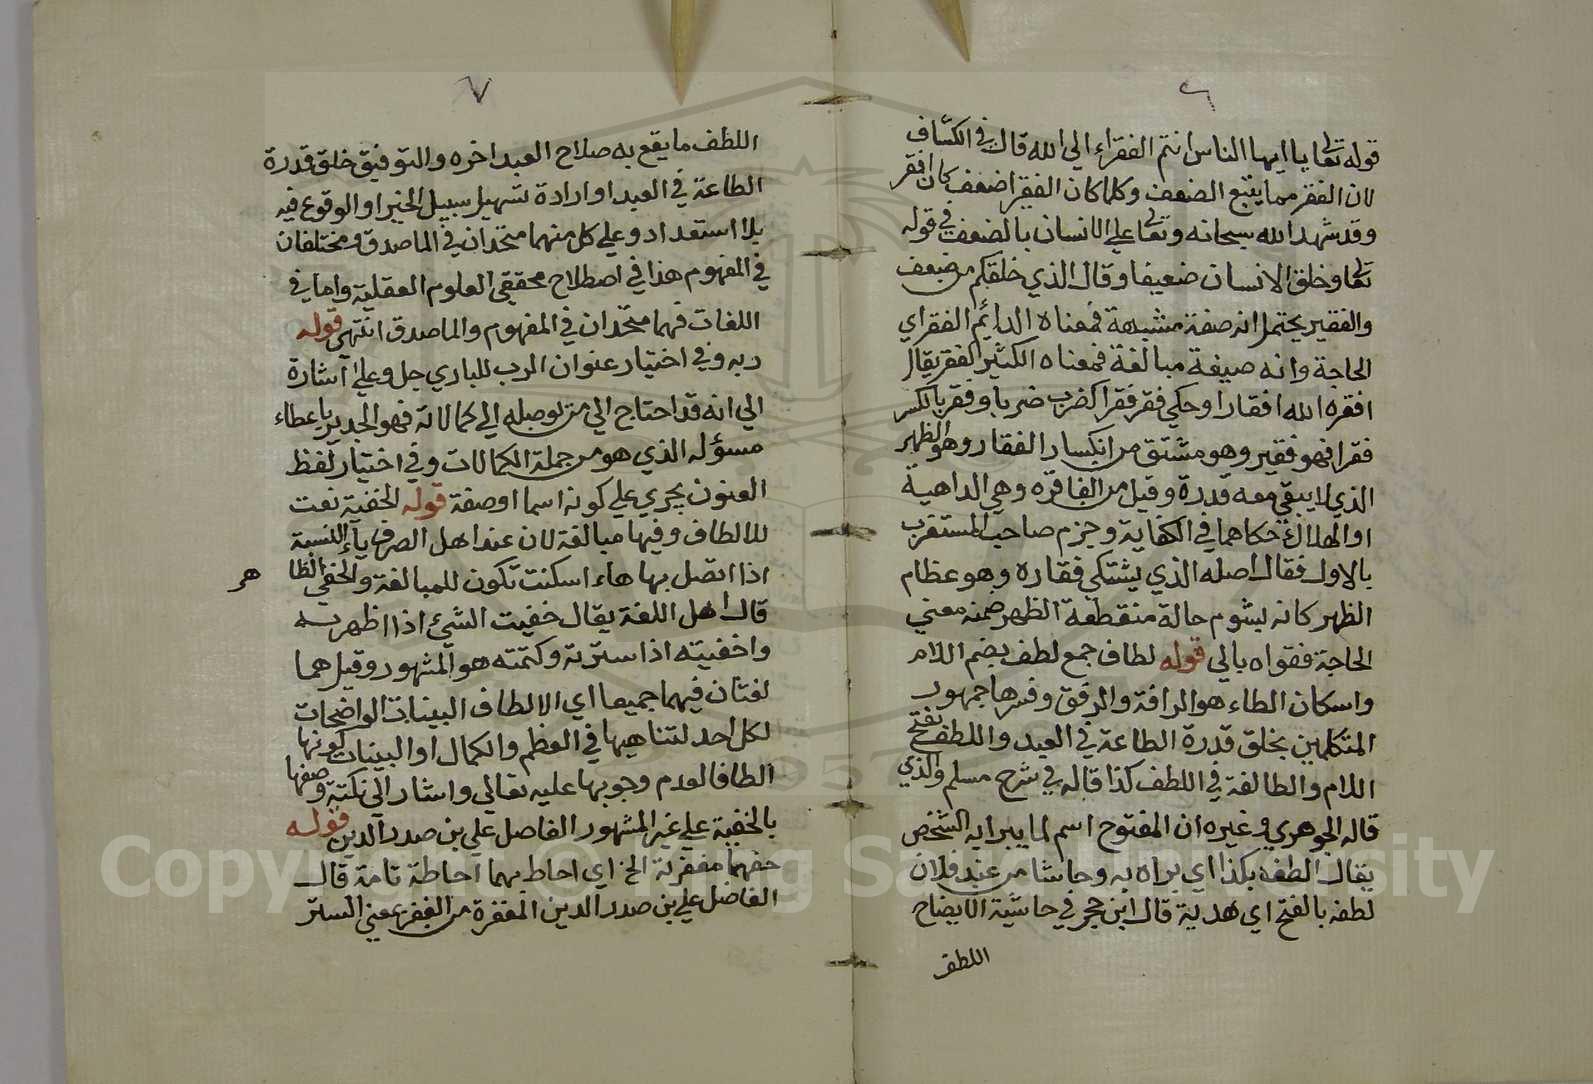 ٦
قوله تعالى يا ايها الناس انتم الفقراء الى الله قال في الكشاف
لان الفقر مما يتبع الضعف وكلما كان الفقير اضعف كان افقر
وقد شهد الله سبحانه وتعالى على الانسان بالضعف في قوله
تعالى وخلق الانسان ضعيفا وقال الذي خلقكم من ضعف
والفقير يحتمل انه صفة مشبهة فمعناه الدائم الفقر اي
الحاجة وانه صيغة مبالغة فمعناه الكثير الفقر يقال
افقره الله افقارا وحكي فقر فقرا كضرب ضربا وفقر بالكسر
فقرا فهو فقير وهو مشتق من انكسار الفقار وهو الظهر
الذي لا يبقي معه قدرة وقيل من الفاقرة وهي الداهية
او الهلاك حكاهما في الكفاية وجزم صاحب المستغرب
بالاول فقال اصله الذي يشتكي فقاره وهو عظام
الظهر كانه لشوم حاله منقطعة الظهر ضمنه معني
الحاجة فقواه بالى قوله لطاف جمع لطف بضم اللام
واسكان الطاء هو الرافة والرفق وفسرها جمهور
المتكلمين بخلق قدرة الطاعة في العبد واللطف بفتح
اللام والطا لغة في اللطف كذا قاله في شرح مسلم والذي
قاله الجوهري وغيره ان المفتوح اسم لما يبر ايه الشخص
يقال الطفه بكذا اي براه به وجاشا من عند فلان
لطفه بالفتح اي هدية قال ابن حجر في حاشية الايضاح
اللطف
٧
اللطف ما يقع به صلاح العبد اخره والتوفيق خلق قدرة
الطاعة في العبد او ارادة تسهيل سبيل الخير او الوقوع فيه
بلا استعداد وعلي كل منهما متحدان في الماصدق ومختلفان
في المفهوم هذا في اصطلاح محققي العلوم العقلية واما في
اللغات فهما متحدان في المفهوم والماصدق انتهى قوله
ربه وفي اختيار عنوان الرب للباري جل وعلا اشارة
الي انه قد احتاج الي من يوصله الي كمالاته فهو الجدير باعطاء
مسؤله الذي هو من جملة الكمالات وفي اختيار لفظ
العنون يجري علي كونه اسما او صفة قوله الخفية نعت
للالطاف وفيها مبالغة لان عند اهل الصرف ياء النسبة
اذا اتصل بها هاء اسكنت تكون للمبالغة والخفي الظا
هر
قال اهل اللغة يقال خفيت الشيء اذا اظهرته
واخفيته اذا سترته وكتمته هو المشهور وقيل هما
لغتان فيهما جميعا اي الالطاف البينات الواضحات
لكل احد لتناهيها في العظم والكمال او البينات كونها
الطافا لعدم وجوبها عليه تعالى واشار الي نكتة وصفها
بالخفية علي غير المشهور الفاضل علي بن صدر الدين قوله
حفهما مغفرته الخ اي احاط بهما احاطة تامة قال
الفاضل علي بن صدر الدين المغفرة من الغفر بمعني الستر
Copyright © King Saud University
1957